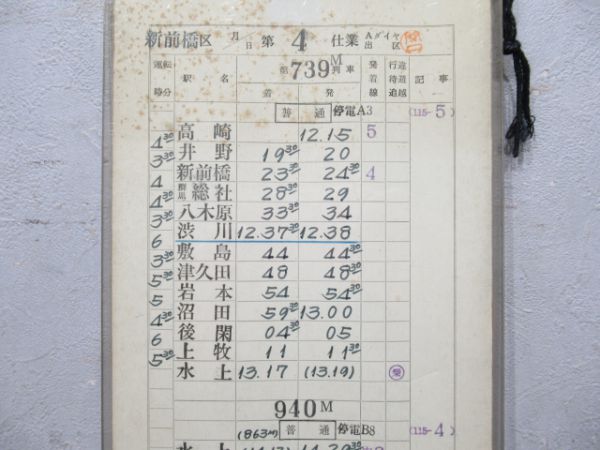 新前橋区 月日 第 4 仕業 Aダイヤ 出区
運転時分 駅名 第739M列車 着 発 発着線 行違待避追越 記事
普通 停電A3 (115-5)
高崎 12.15 5
4³⁰ 井野 19³⁰ 20
3³⁰ 新前橋 23³⁰ 24³⁰ 4
4 群馬総社 28³⁰ 29
4³⁰ 八木原 33³⁰ 34
3³⁰ 渋川 12.37³⁰ 12.38
6 敷島 44 44³⁰
3³⁰ 津久田 48 48³⁰
5³⁰ 岩本 54 54³⁰
5 沼田 59³⁰ 13.00
4³⁰ 後閑 04³⁰ 05
6 上牧 11 11³⁰
5³⁰ 水上 13.17 (13.19)
940M
(863M) 普通 停電B8 (115-4)
水上